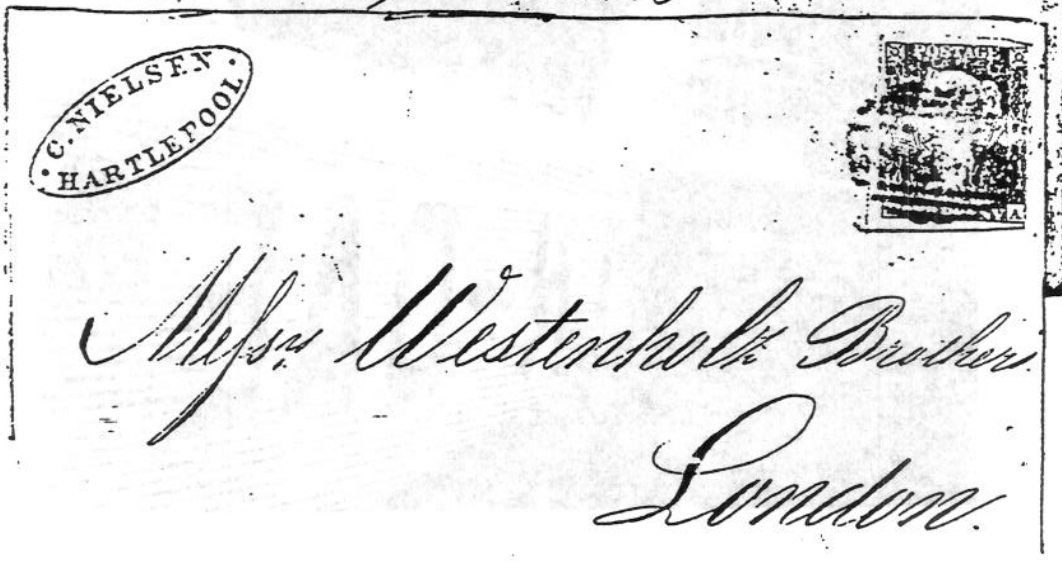 · C. NIELSEN ·
HARTLEPOOL
S POSTAGE
A
Messrs Westenholz Brothers.
London.